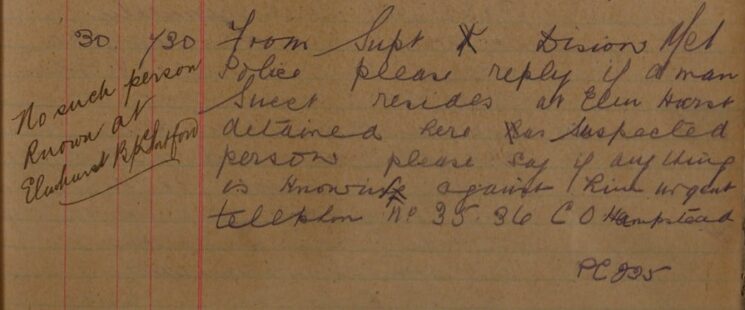 30. 730 From Supt X Dision Met
Police please reply if a man
Sweet resides at Elm Hurst
detained here as suspected
person please say if anything
is known against him urgent
telephon No 35.36 C O Hampstead
PC 225
No such person
Known at
Elmhurst